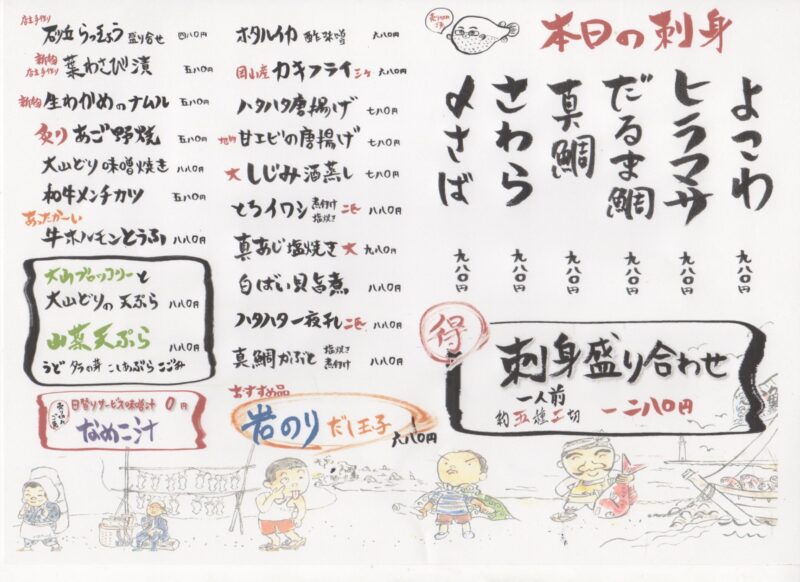 本日の刺身
よこわ 九八〇円
ヒラマサ 九八〇円
だるま鯛 九八〇円
真鯛 九八〇円
さわら 九八〇円
〆さば 九八〇円
得
刺身盛り合わせ
一人前
約五種二切 一二八〇円
ホタルイカ 酢味噌 六八〇円
岡山産 カキフライ 三ケ 六八〇円
ハタハタ唐揚げ 七八〇円
地物 甘エビの唐揚げ 七八〇円
大 しじみ酒蒸し 七八〇円
とろイワシ 煮付け 塩焼き 二匹 八八〇円
真あじ塩焼き 大 九八〇円
白ばい貝旨煮 八八〇円
ハタハタ一夜干し 二匹 八八〇円
真鯛かぶと 塩焼き 煮付け 八八〇円
おすすめ品
岩のり だし玉子 六八〇円
店主手作り
砂丘らっきょう 盛り合せ 四八〇円
新物 店主手作り
葉わさび漬 五八〇円
新物 生わかめのナムル 五八〇円
炙り あご野焼 五八〇円
大山どり味噌焼き 八八〇円
和牛メンチカツ 五八〇円
あったかーい
牛ホルモンとうふ 八八〇円
大山ブロッコリーと
大山どりの天ぷら 八八〇円
山菜天ぷら 八八〇円
うど タラの芽 こしあぶら こごみ
日替りサービス味噌汁 0円
なめこ汁